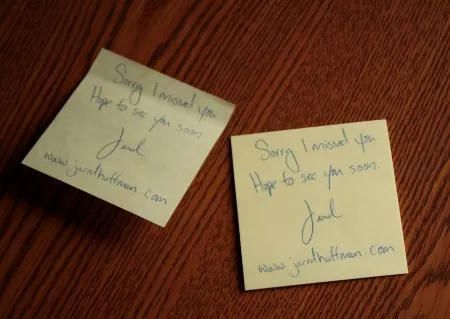 Sorry I missed you
Hope to see you soon
www.jarredhuffman.com
Sorry I missed you
Hope to see you soon.
www.jarredhuffman.com